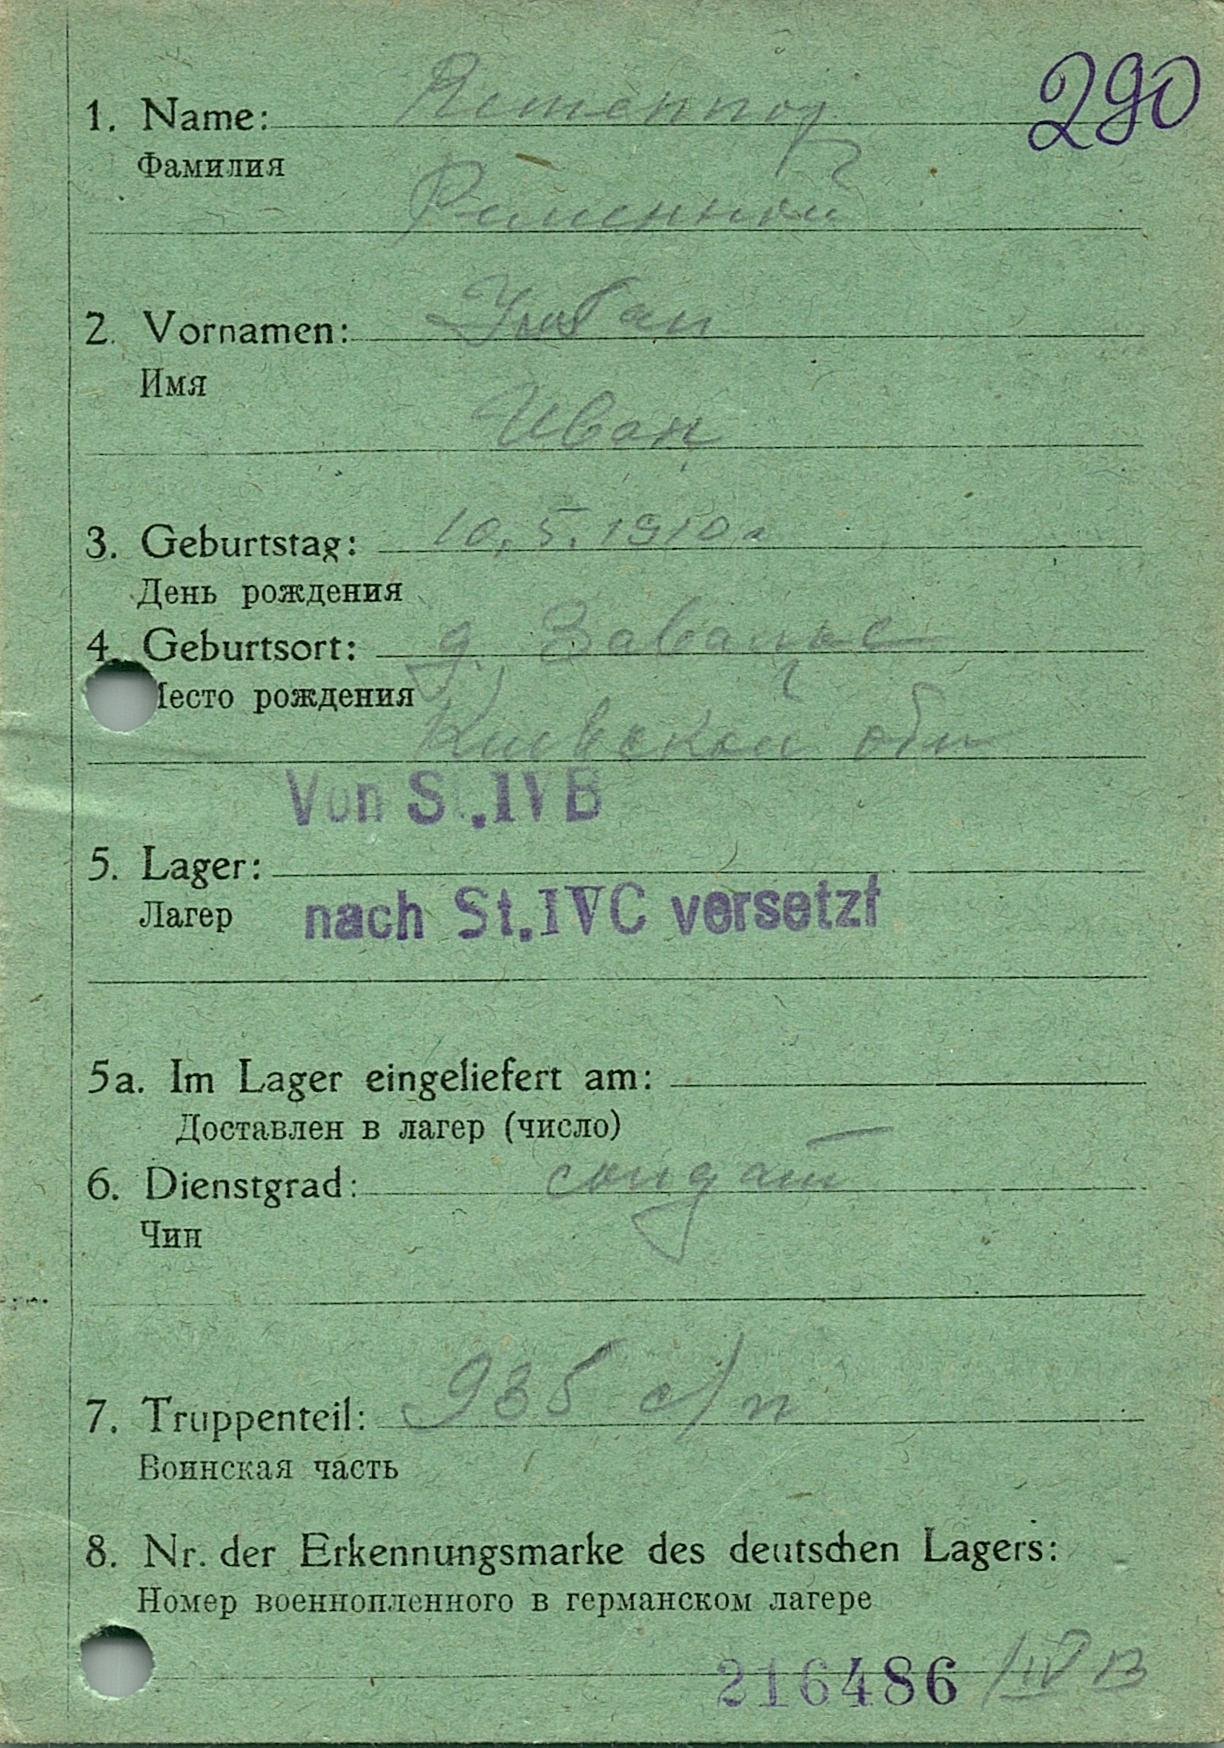 290
1. Name: Remennoj
Фамилия
Ременной
2. Vornamen: Iwan
Имя
Иван
3. Geburtstag: 10.5.1910г
День рождения
4. Geburtsort: д.
Место рождения
Киевской обл
Von St.IVB
5. Lager:
Лагер
nach St.IVC versetzt
5a. Im Lager eingeliefert am:
Доставлен в лагер (число)
6. Dienstgrad: солдат
Чин
7. Truppenteil: 935 с/п
Воинская часть
8. Nr. der Erkennungsmarke des deutschen Lagers:
Номер военнопленного в германском лагере
216486 /IV B